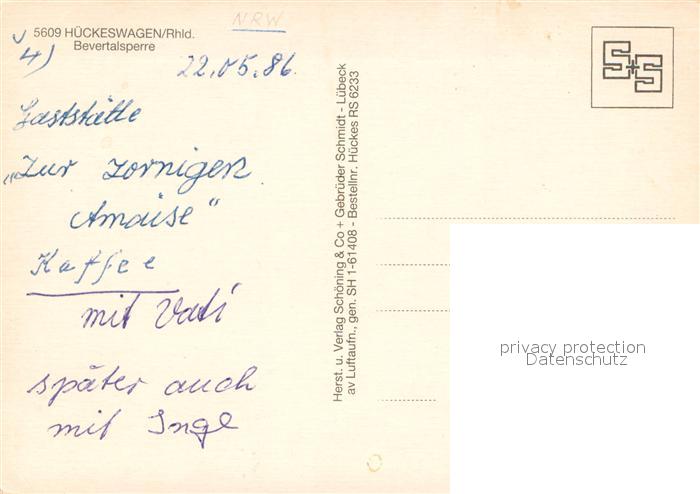 NRW
5609 HÜCKESWAGEN/Rhld.
Bevertalsperre
4)
22.05.86
S+S
Gaststätte
„Zur zornigen
Amaise“
Kaffee
mit Vati
später auch
mit Inge
Herst. u. Verlag Schöning & Co + Gebrüder Schmidt - Lübeck
av Luftaufn., gen. SH 1-61408 - Bestellnr. Hückes RS 6233
privacy protection
Datenschutz